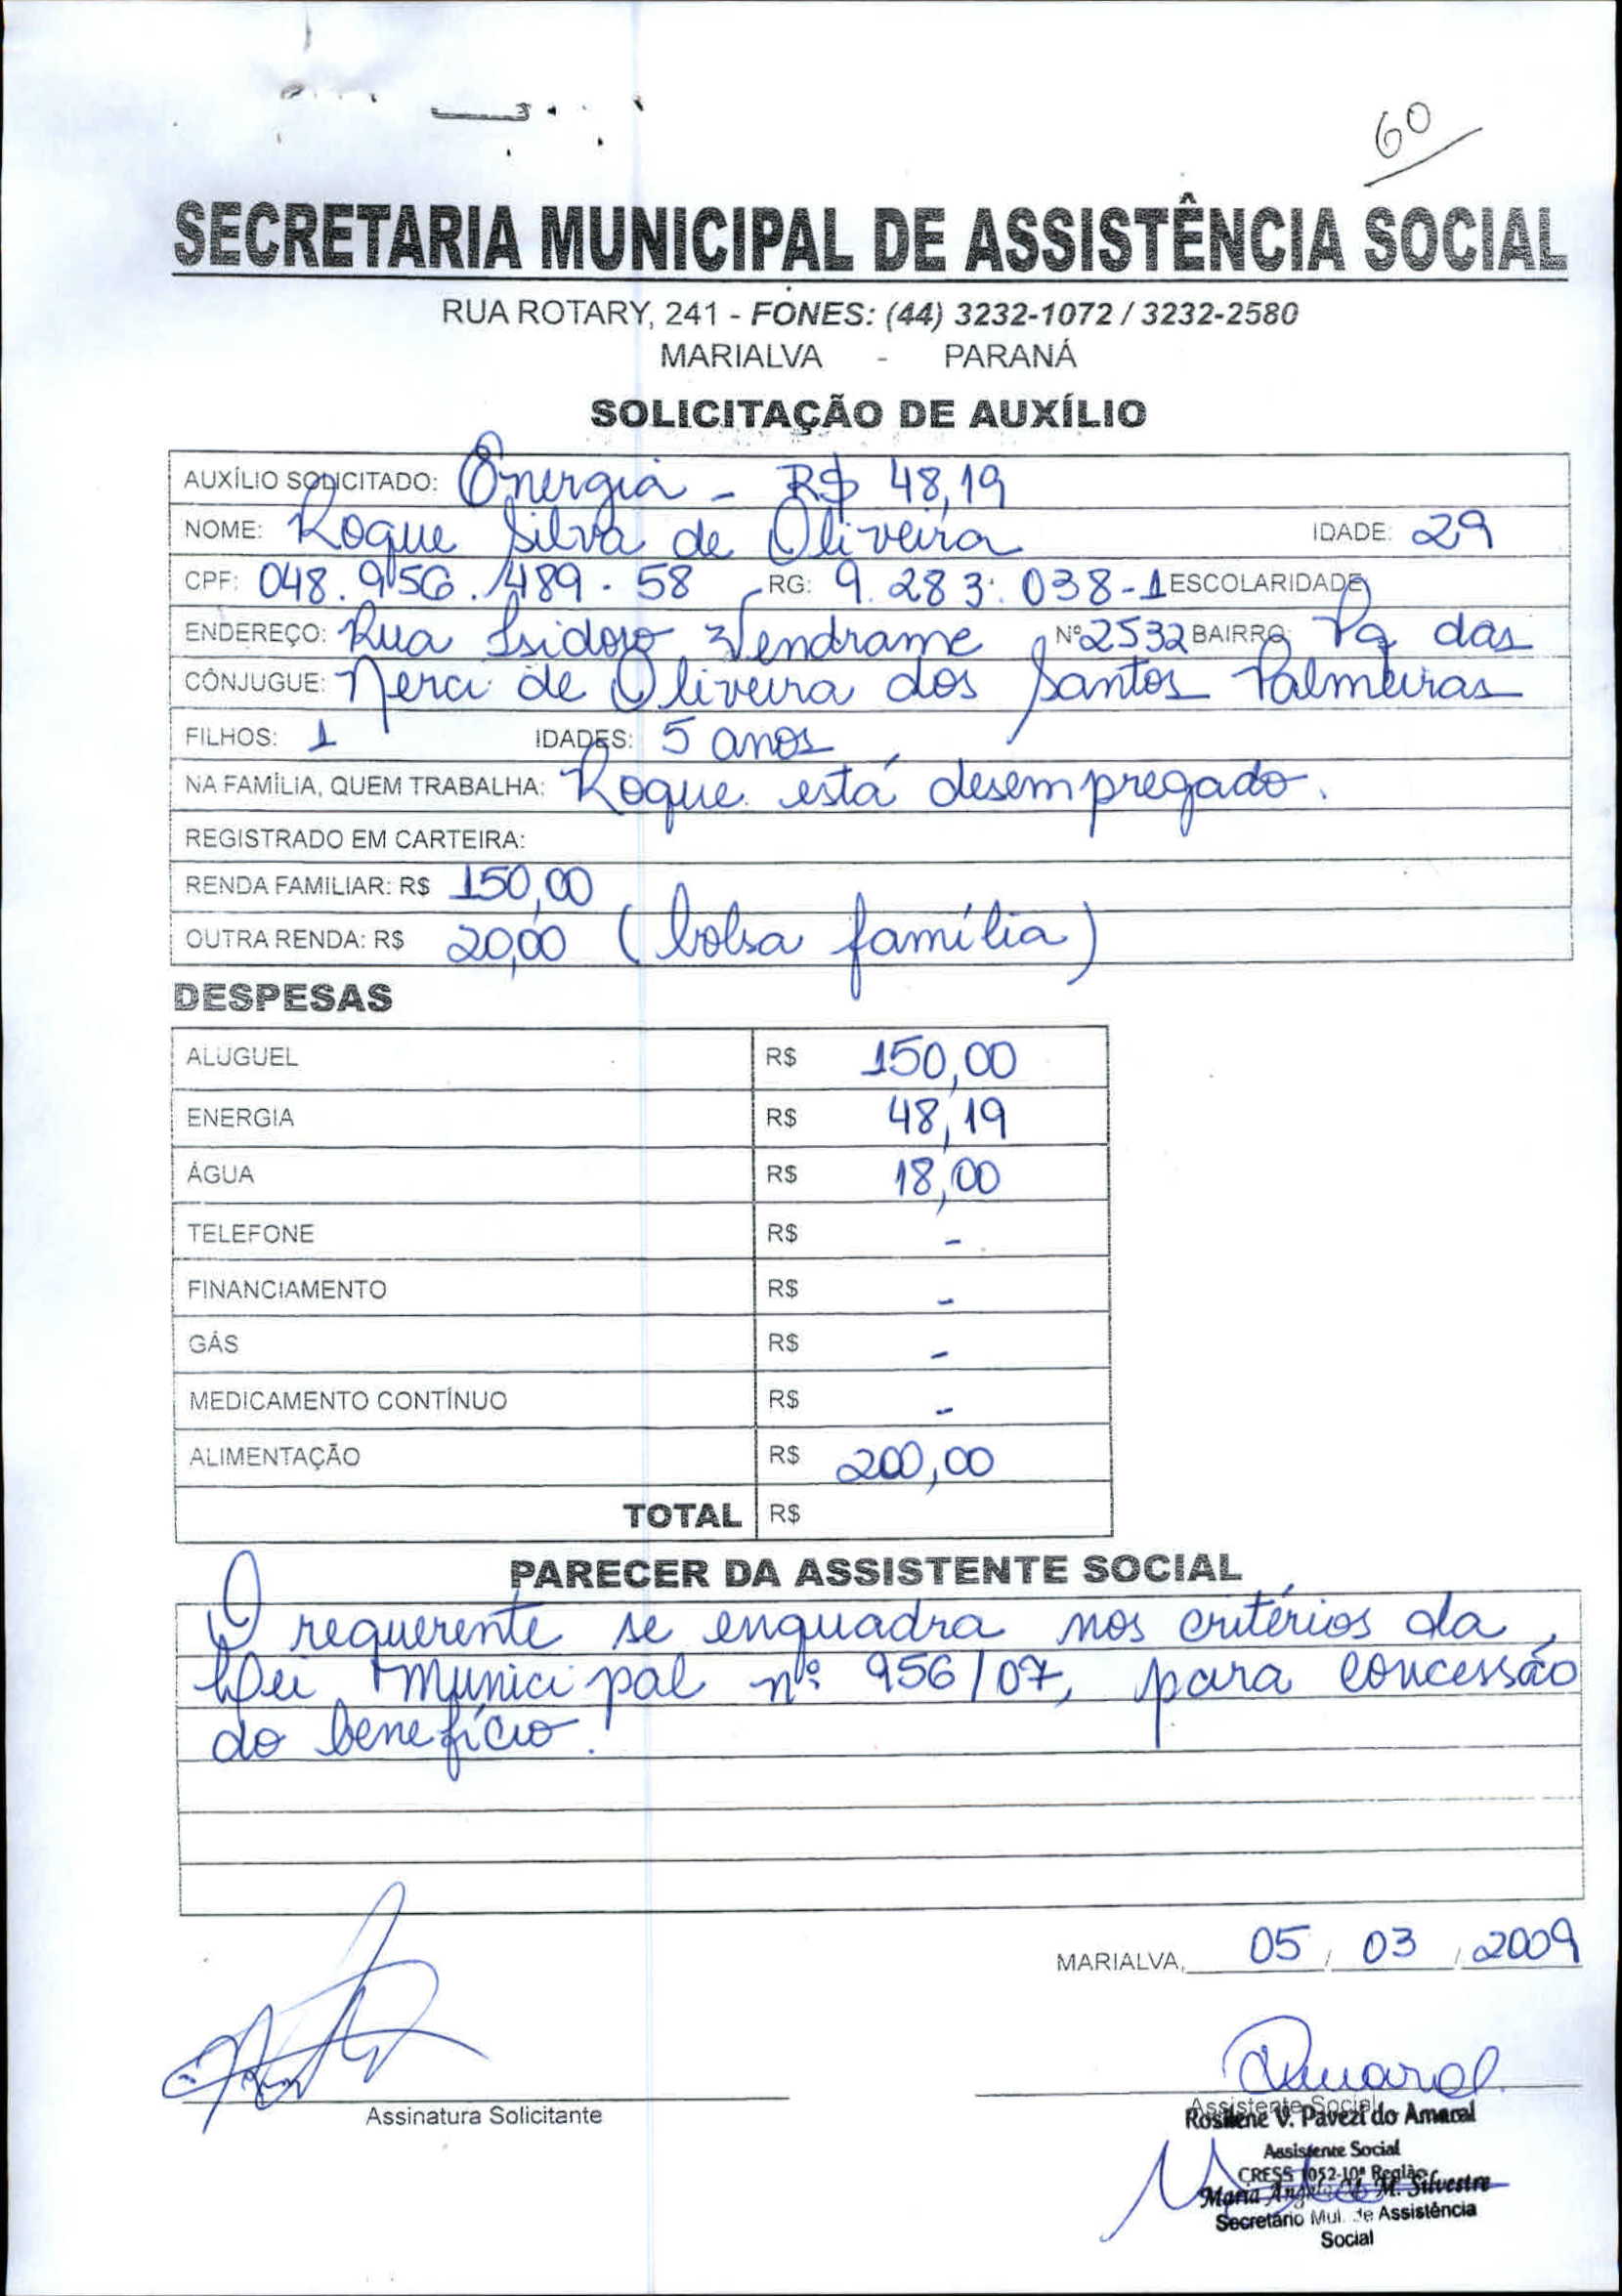 60
SECRETARIA MUNICIPAL DE ASSISTÊNCIA SOCIAL
RUA ROTARY, 241 - FONES: (44) 3232-1072 / 3232-2580
MARIALVA - PARANÁ
SOLICITAÇÃO DE AUXÍLIO
AUXÍLIO SOLICITADO: Energia - R$ 48,19
NOME: Roque Silva de Oliveira IDADE: 29
CPF: 048.956.489-58 RG: 9.283.038-1 ESCOLARIDADE
ENDEREÇO: Rua Isidoro Vendrame Nº 2532 BAIRRO: Pq das
CÔNJUGUE: Nerci de Oliveira dos Santos Palmeiras
FILHOS: 1 IDADES: 5 anos
NA FAMÍLIA, QUEM TRABALHA: Roque está desempregado.
REGISTRADO EM CARTEIRA:
RENDA FAMILIAR: R$ 150,00
OUTRA RENDA: R$ 20,00 (bolsa família)
DESPESAS
ALUGUEL R$ 150,00
ENERGIA R$ 48,19
ÁGUA R$ 18,00
TELEFONE R$ -
FINANCIAMENTO R$ -
GÁS R$ -
MEDICAMENTO CONTÍNUO R$ -
ALIMENTAÇÃO R$ 200,00
TOTAL R$
PARECER DA ASSISTENTE SOCIAL
O requerente se enquadra nos critérios da
Lei Municipal nº 956/07, para concessão
do benefício.
MARIALVA, 05 / 03 / 2009
Amaral
Assinatura Solicitante
Assistente Social
Rosilene V. Pavezi do Amaral
Assistente Social
CRESS 1052-10ª Região
Maria M. Silvestre
Secretário Mul. de Assistência
Social